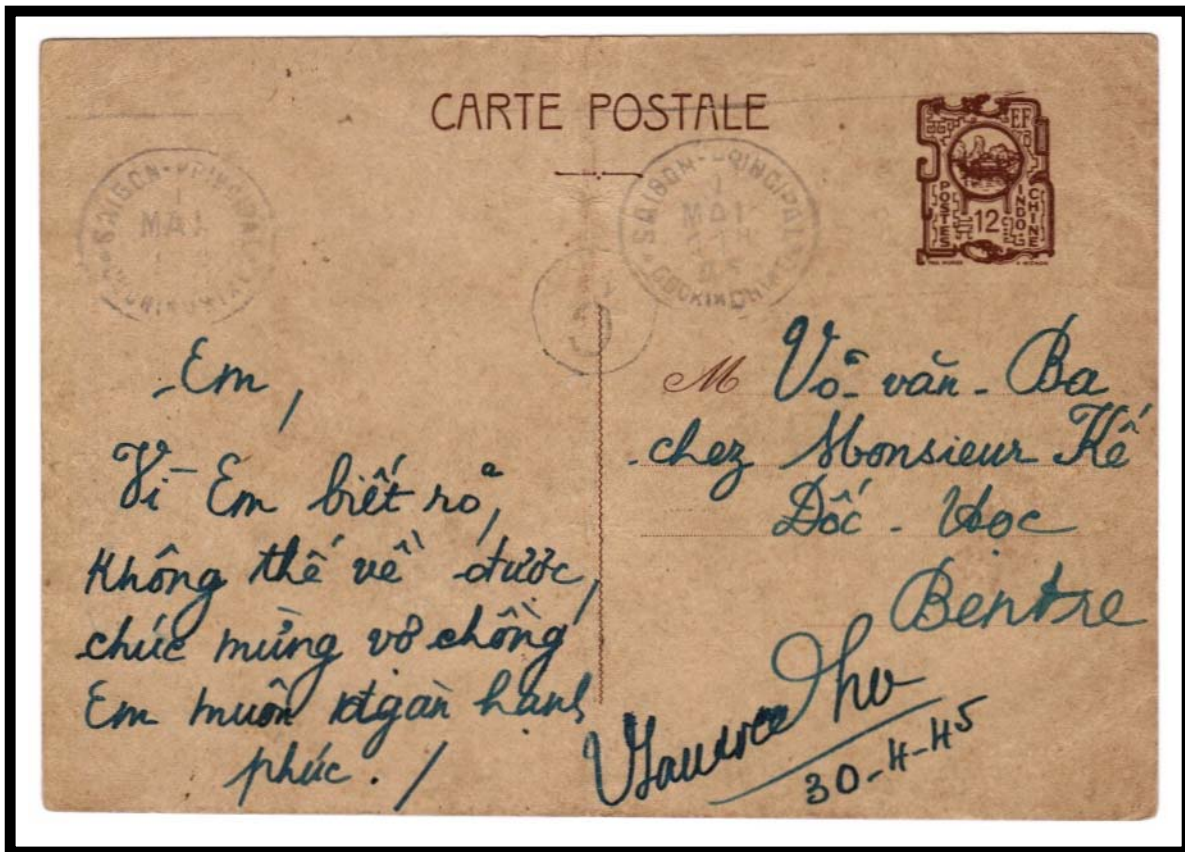 CARTE POSTALE
SAIGON-PRINCIPAL
1
MAI
SAIGON-PRINCIPAL
1
MAI
45
COCHINCHINE
EF
POSTES
INDO
CHINE
12
C
Em,
Vì Em biết rõ,
không thể về được,
chúc mừng vợ chồng
Em muôn ngàn hạnh
phúc . /
M Võ- văn- Ba
chez Monsieur Kế
Đốc - Học
Bentre
Thu
30-4-45